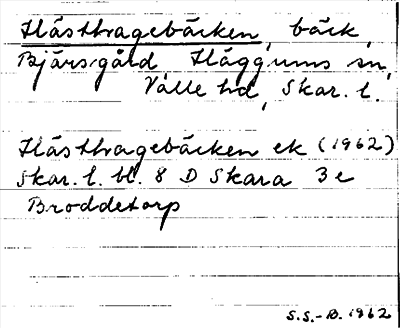 Hästhagebäcken, bäck,
Bjärsgård Häggums sn,
Valle hd, Skar. l.
Hästhagebäcken ek (1962)
Skar. l. bl. 8 D Skara 3 e
Broddetorp
S.S.-B. 1962